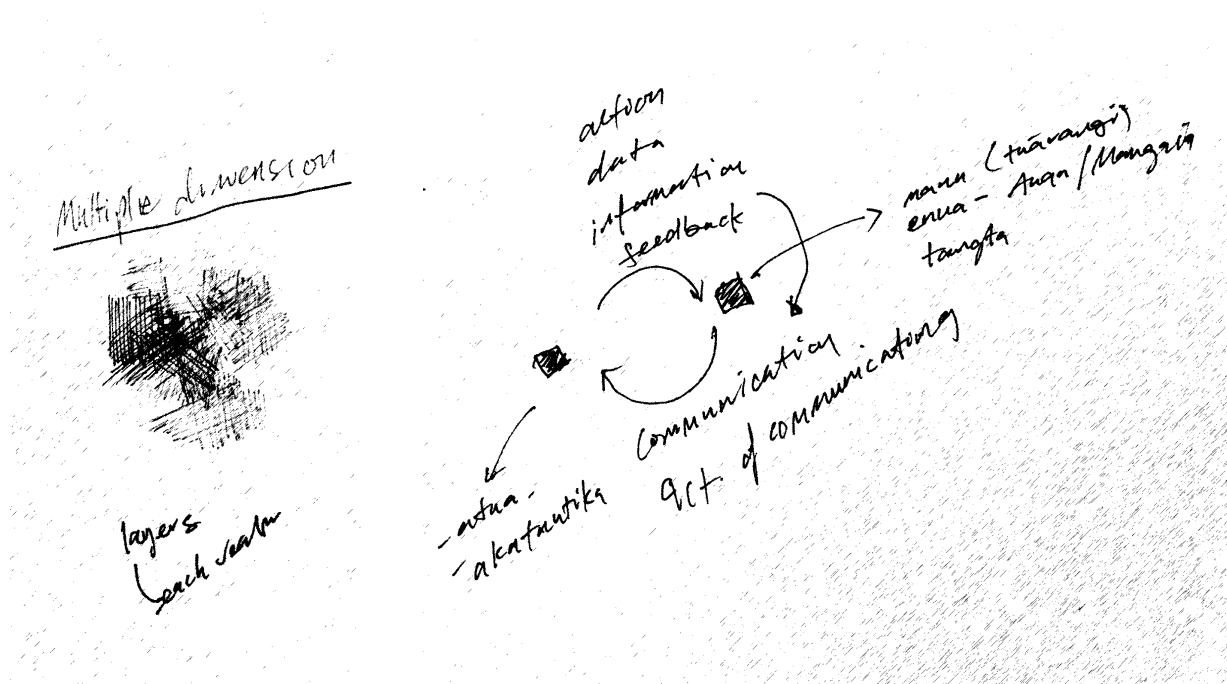 Multiple dimension
layers
each realm
action
data
information
feedback
manu (tuārangi)
enua - Auau / Mangaia
tangta
communication.
act of communicating
- atua -
- akatautika